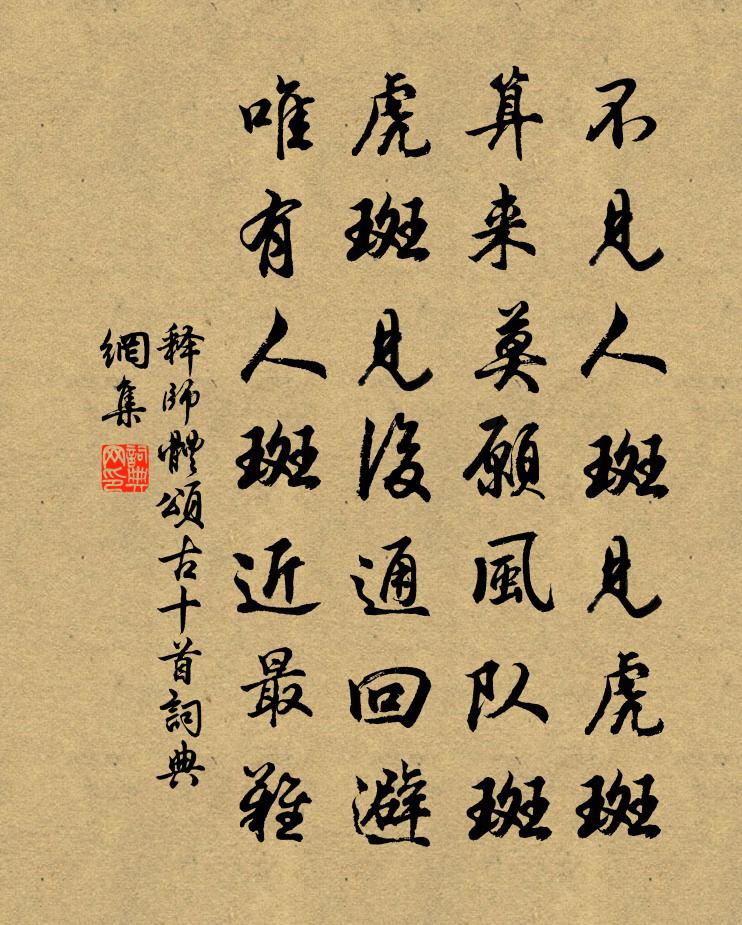 不见人斑见虎斑
算来莫愿風队斑
虎斑见後通回避
唯有人斑近最难
释師體頌古十首詞典
網集
詞典
网印